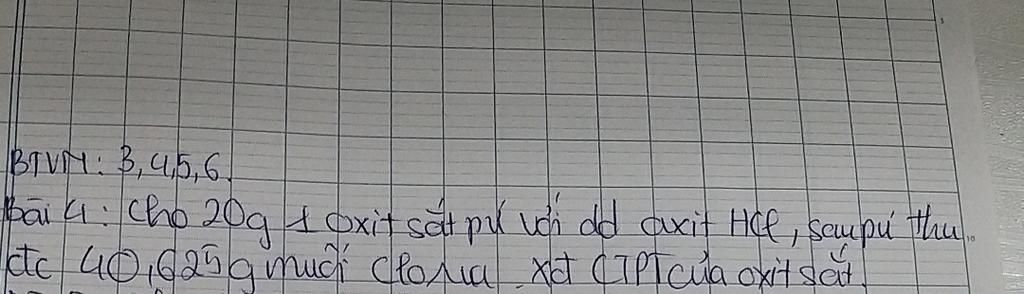 BTVN: 3,4,5,6.
bài 4: Cho 20g 1 oxit sắt pứ với dd axit HCl, sau pứ thu
đc 40,625g muối clorua. xđ CTPT của oxit sắt.